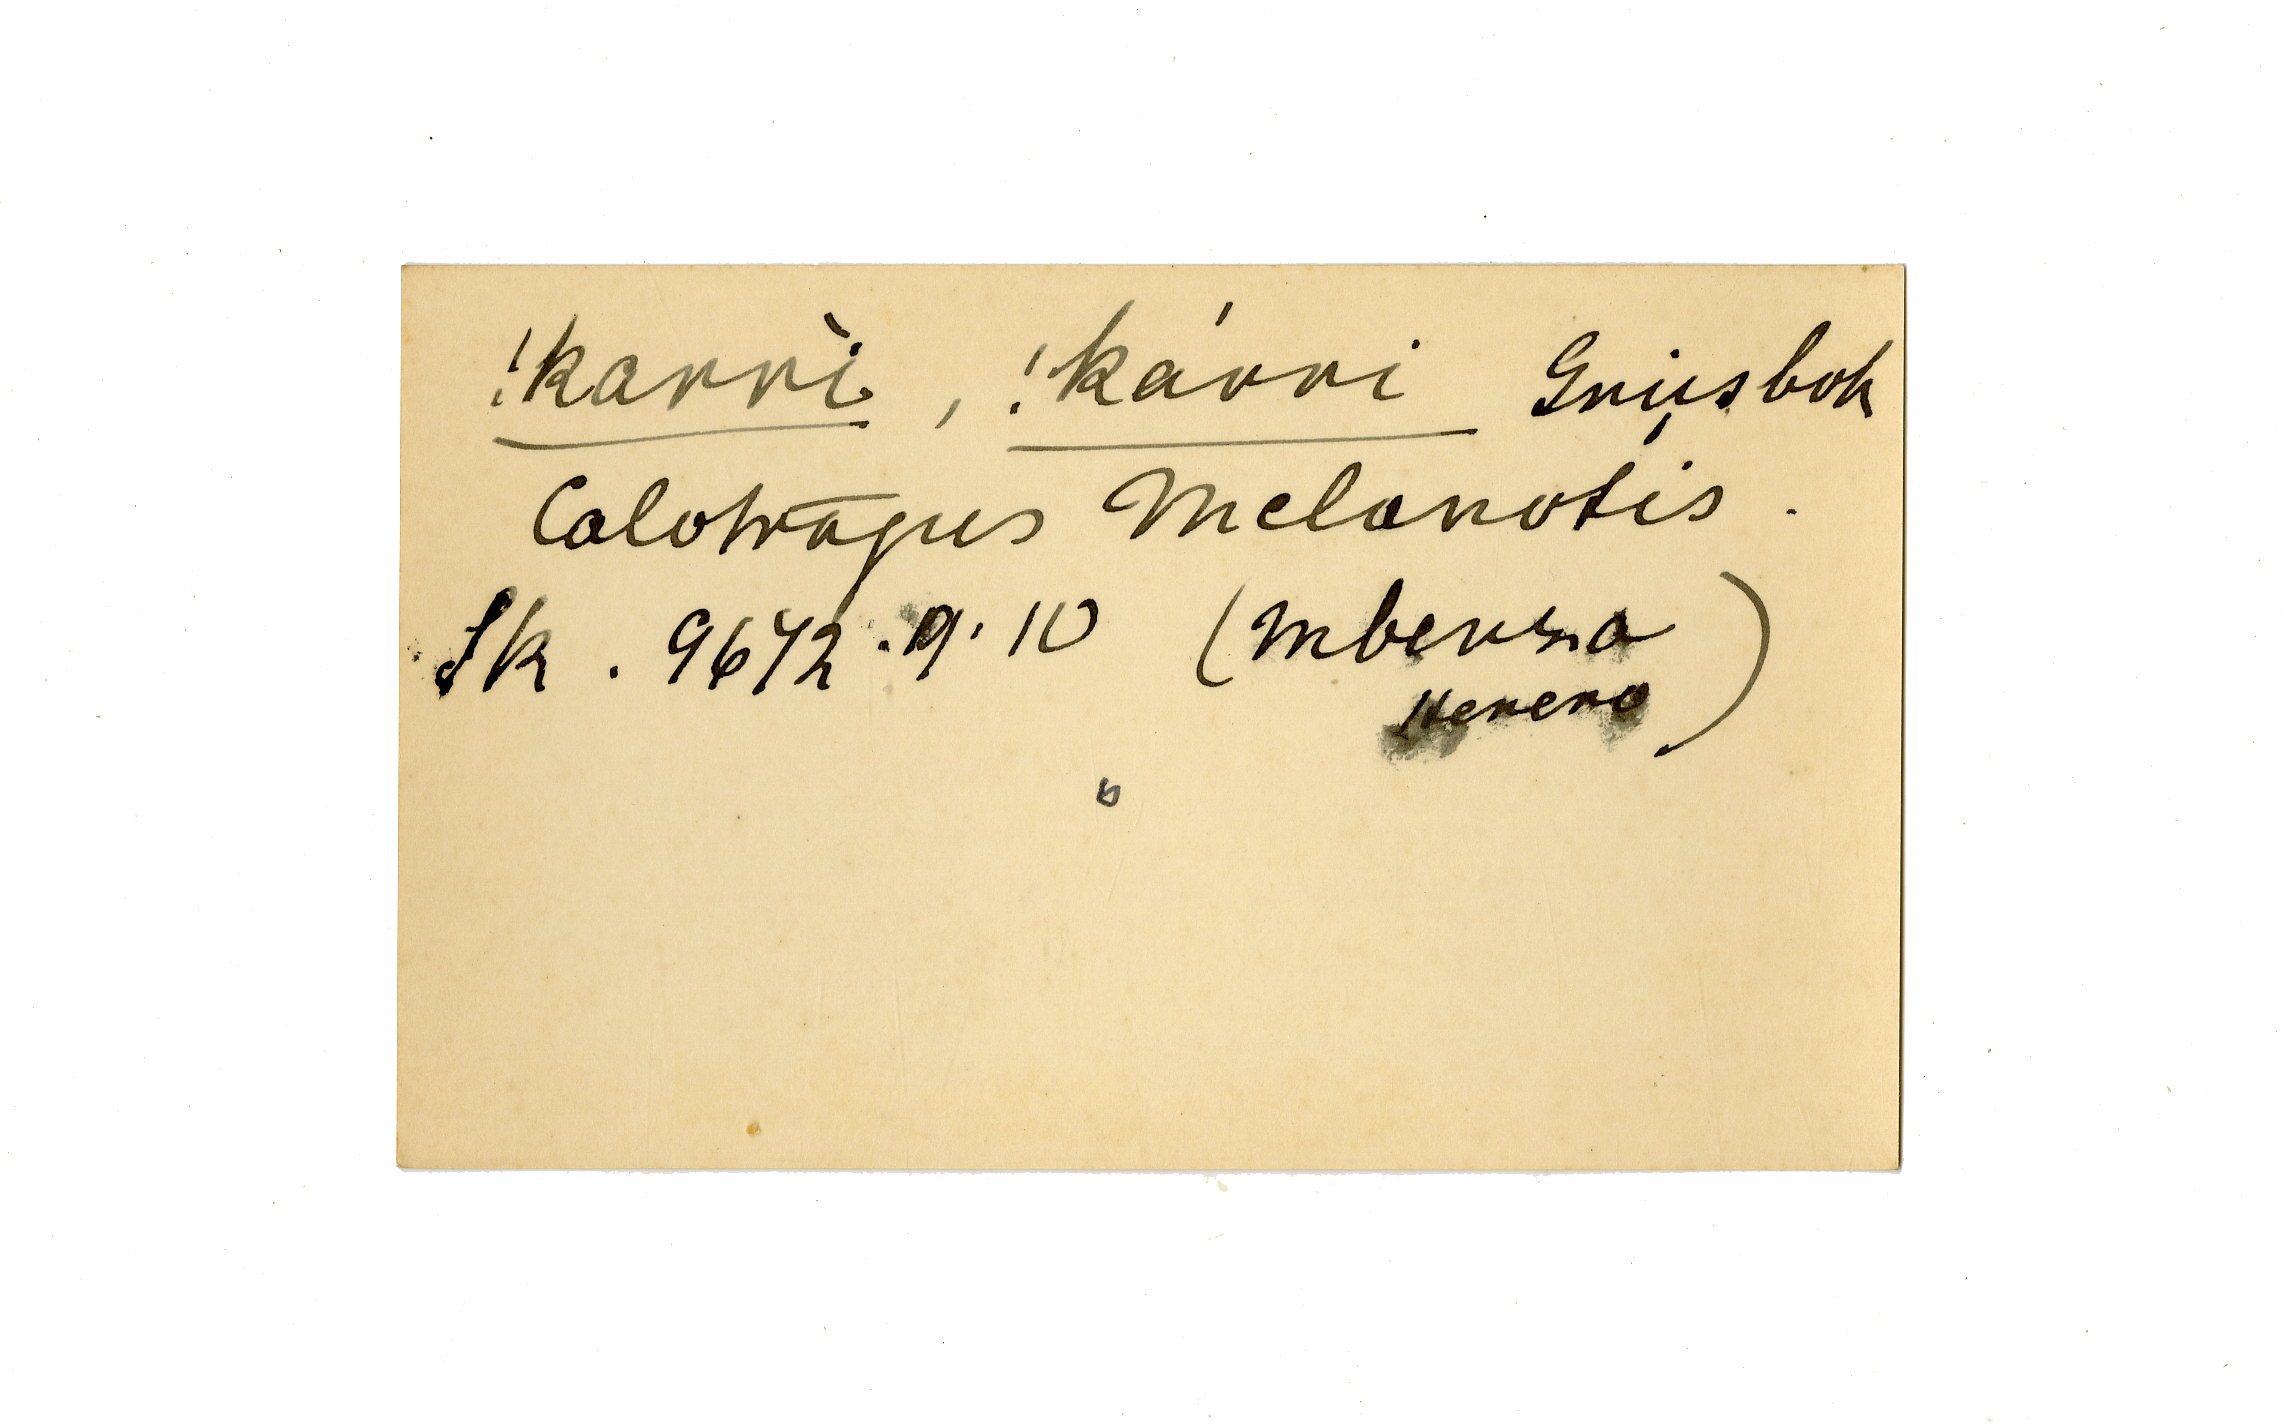 !karrì, !kárri Gnysbok
Calotragus Melanotis.
SK. 9672.9.10 (Mbenza
Herero)